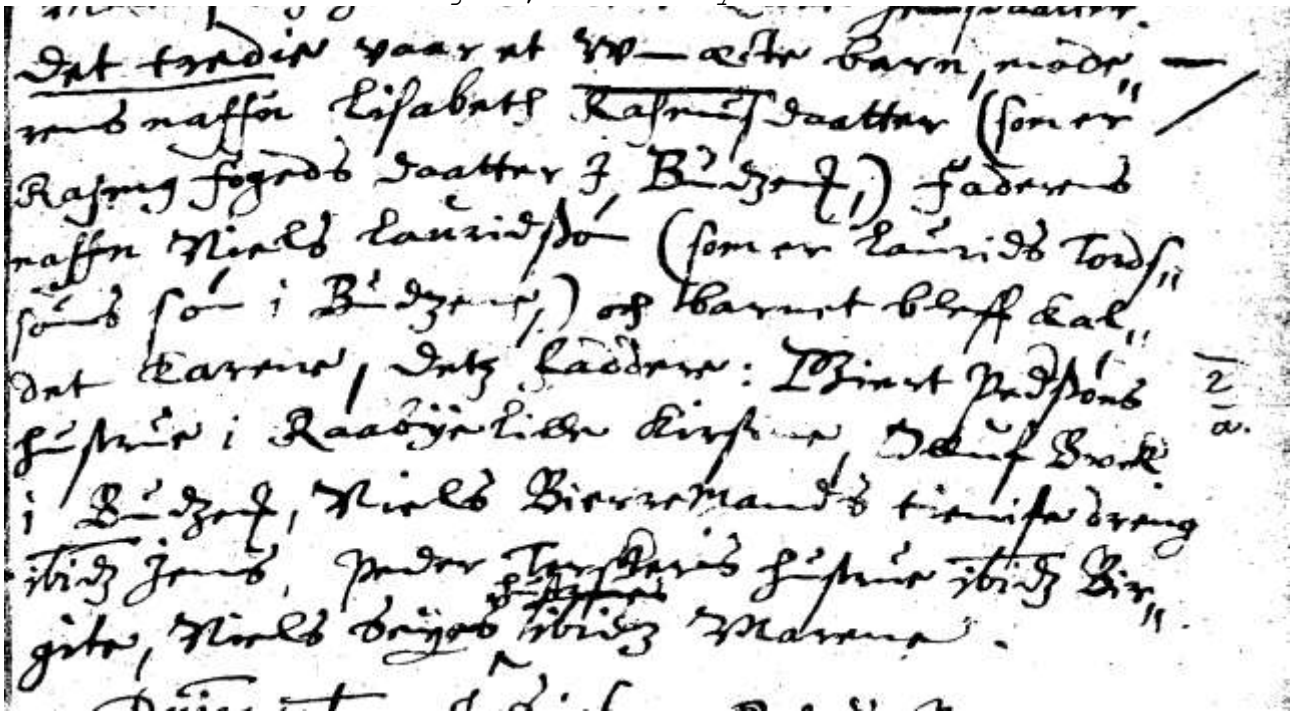 det tredie vaar et Vv-æcte barn, mode„
rens naffn Lisabeth Rasmusdaatter (som er
Rasmus fogeds daatter i Budzene,) faderens
naffn Niels Lauridssøn (som er Laurids Tords„
søns søn i Budzene,) och barnet bleff kal„
det Karene, detz faddere: Biert Pedssøns
hustrue i Raabye lille Kirstine, Oluf Bvek
i Budzene, Niels Bierremands tieniste dreng
ibidz Jens, Peder Terskers hustrue ibidz Bir„
gite, Niels Seyers hustrues ibidz Marene.
2
a.